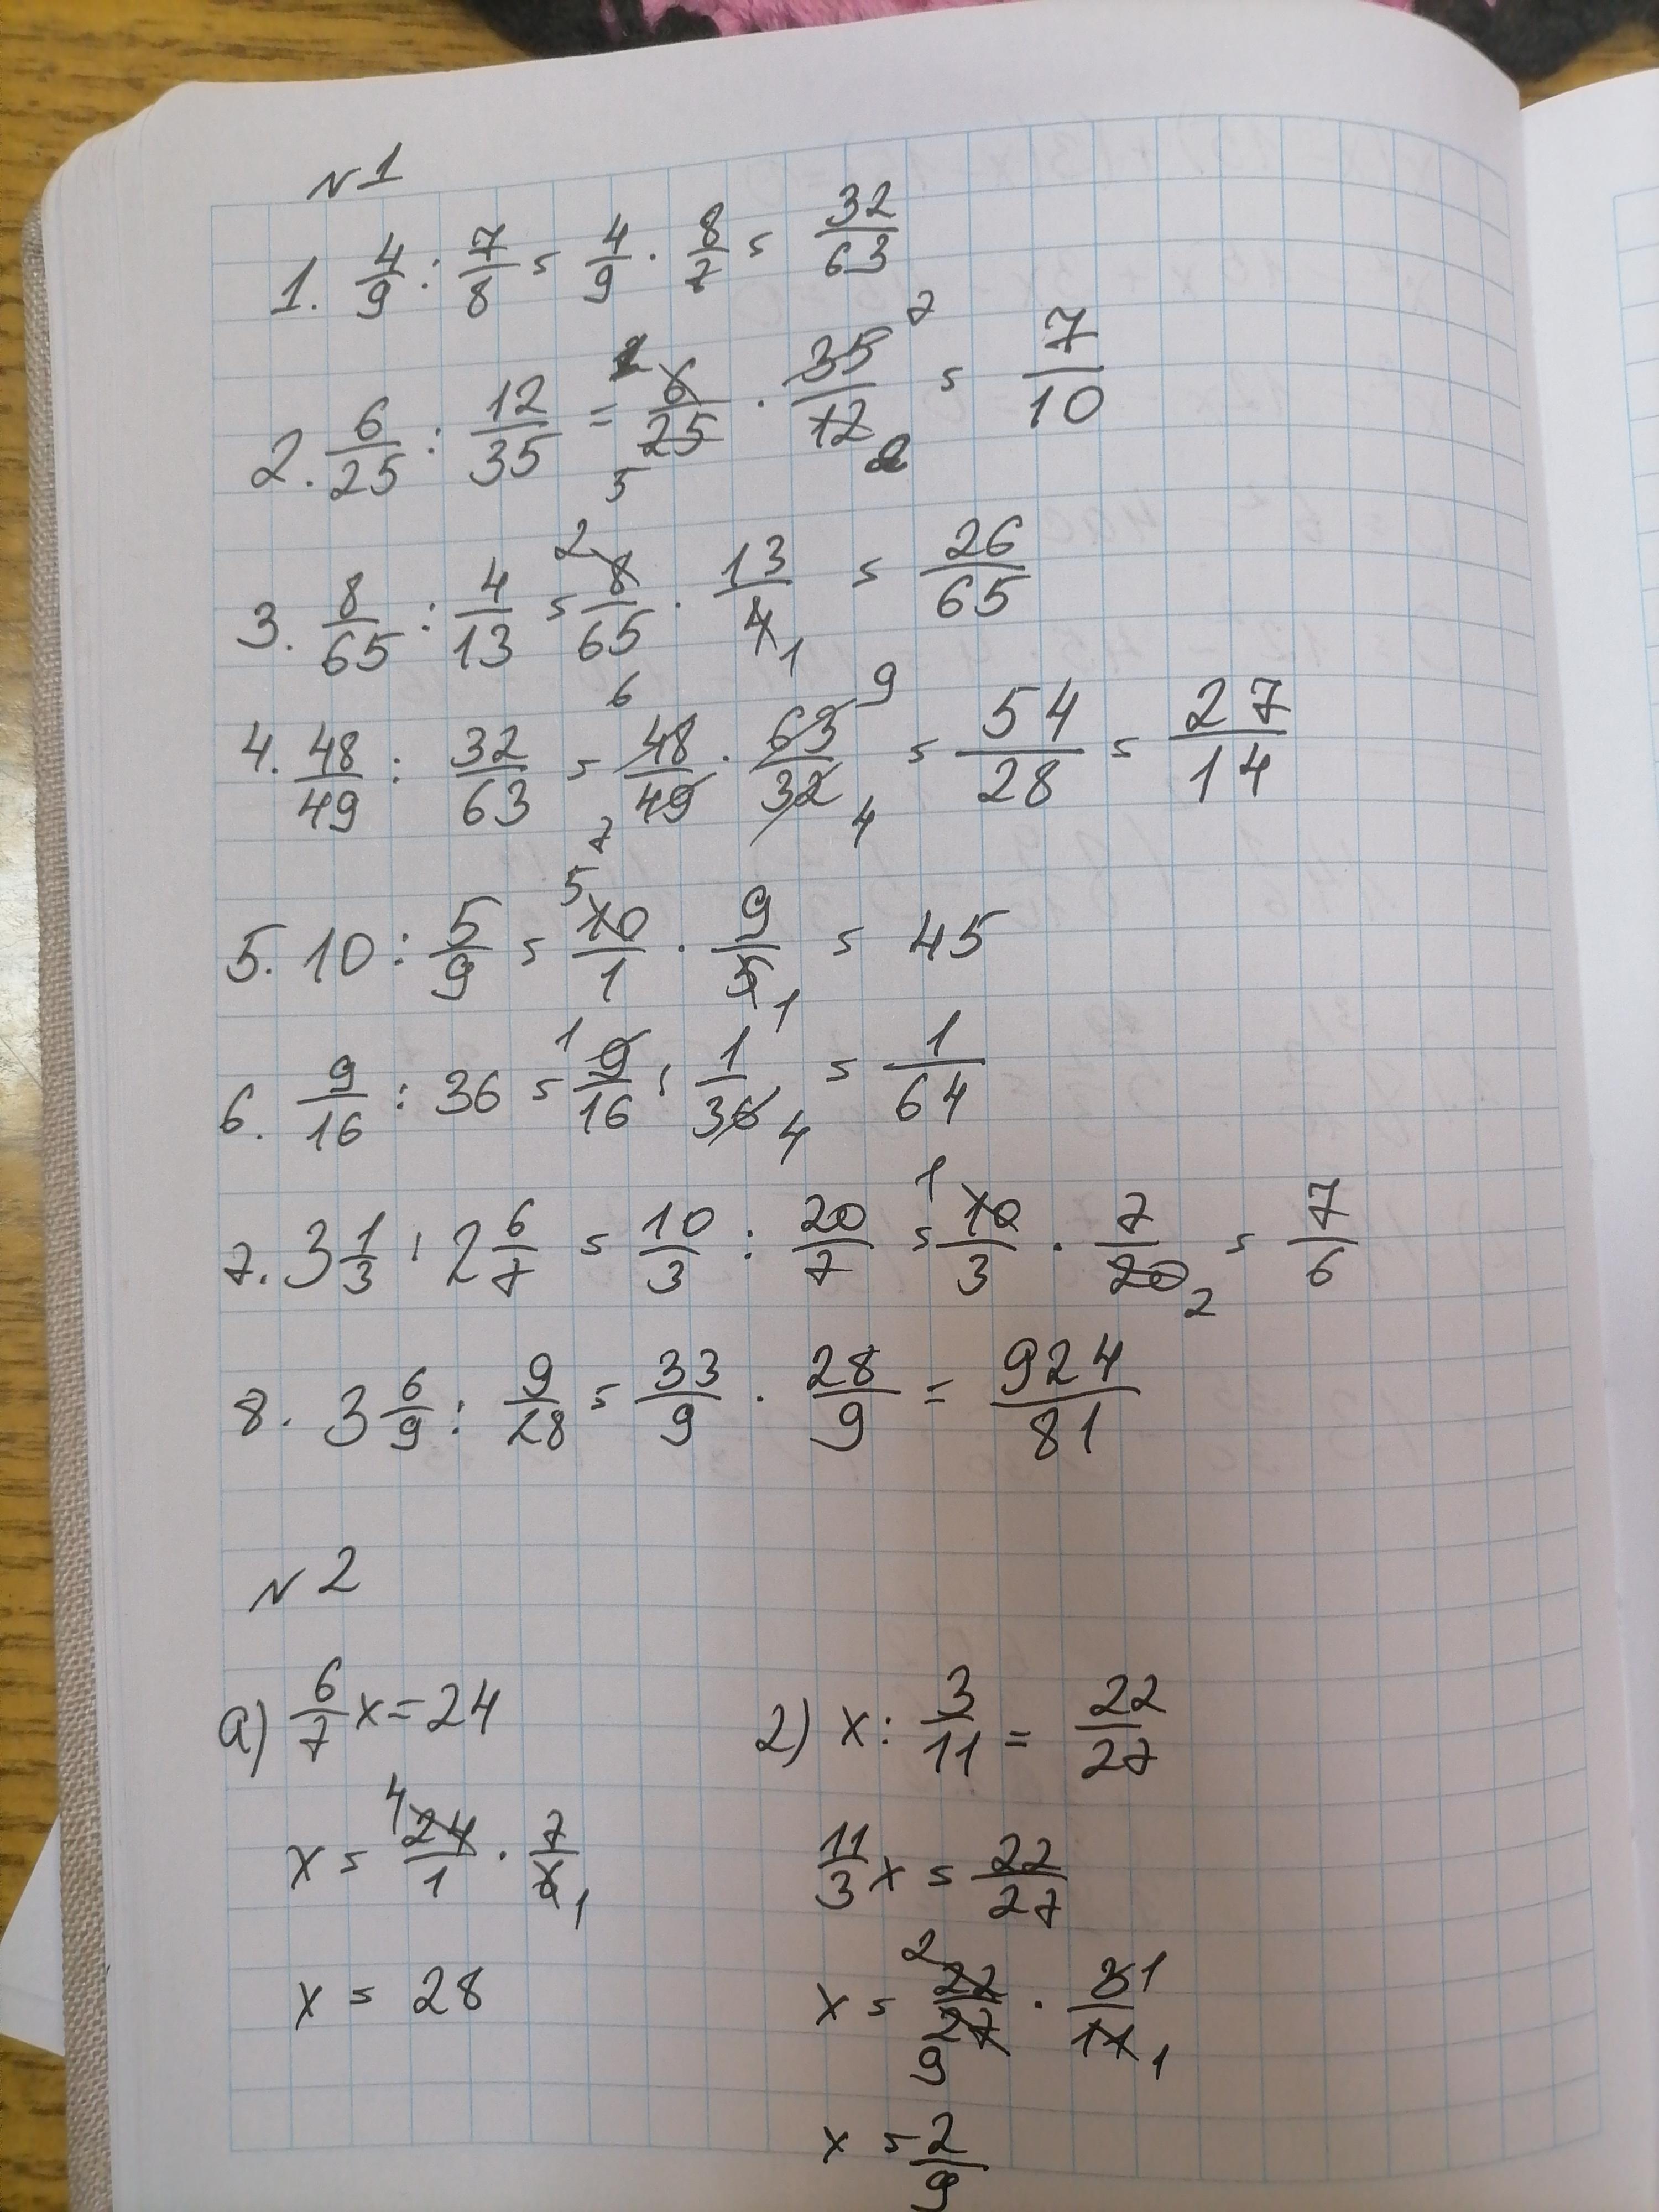 N1
1. 4/9 : 7/8 = 4/9 · 8/7 = 32/63
2. 6/25 : 12/35 = 6/25 · 35/12 = 7/10
3. 8/65 : 4/13 = 8/65 · 13/4 = 26/65
4. 48/49 : 32/63 = 48/49 · 63/32 = 54/28 = 27/14
5. 10 : 5/9 = 10/1 · 9/5 = 45
6. 9/16 : 36 = 9/16 : 1/36 = 1/64
7. 3 1/3 : 2 6/7 = 10/3 : 20/7 = 10/3 · 7/20 = 7/6
8. 3 6/9 : 9/28 = 33/9 · 28/9 = 924/81
N2
a) 6/7 x = 24
x = 24/1 · 7/6
x = 28
2) x : 3/11 = 22/27
11/3 x = 22/27
x = 22/27 · 3/11
x = 2/9